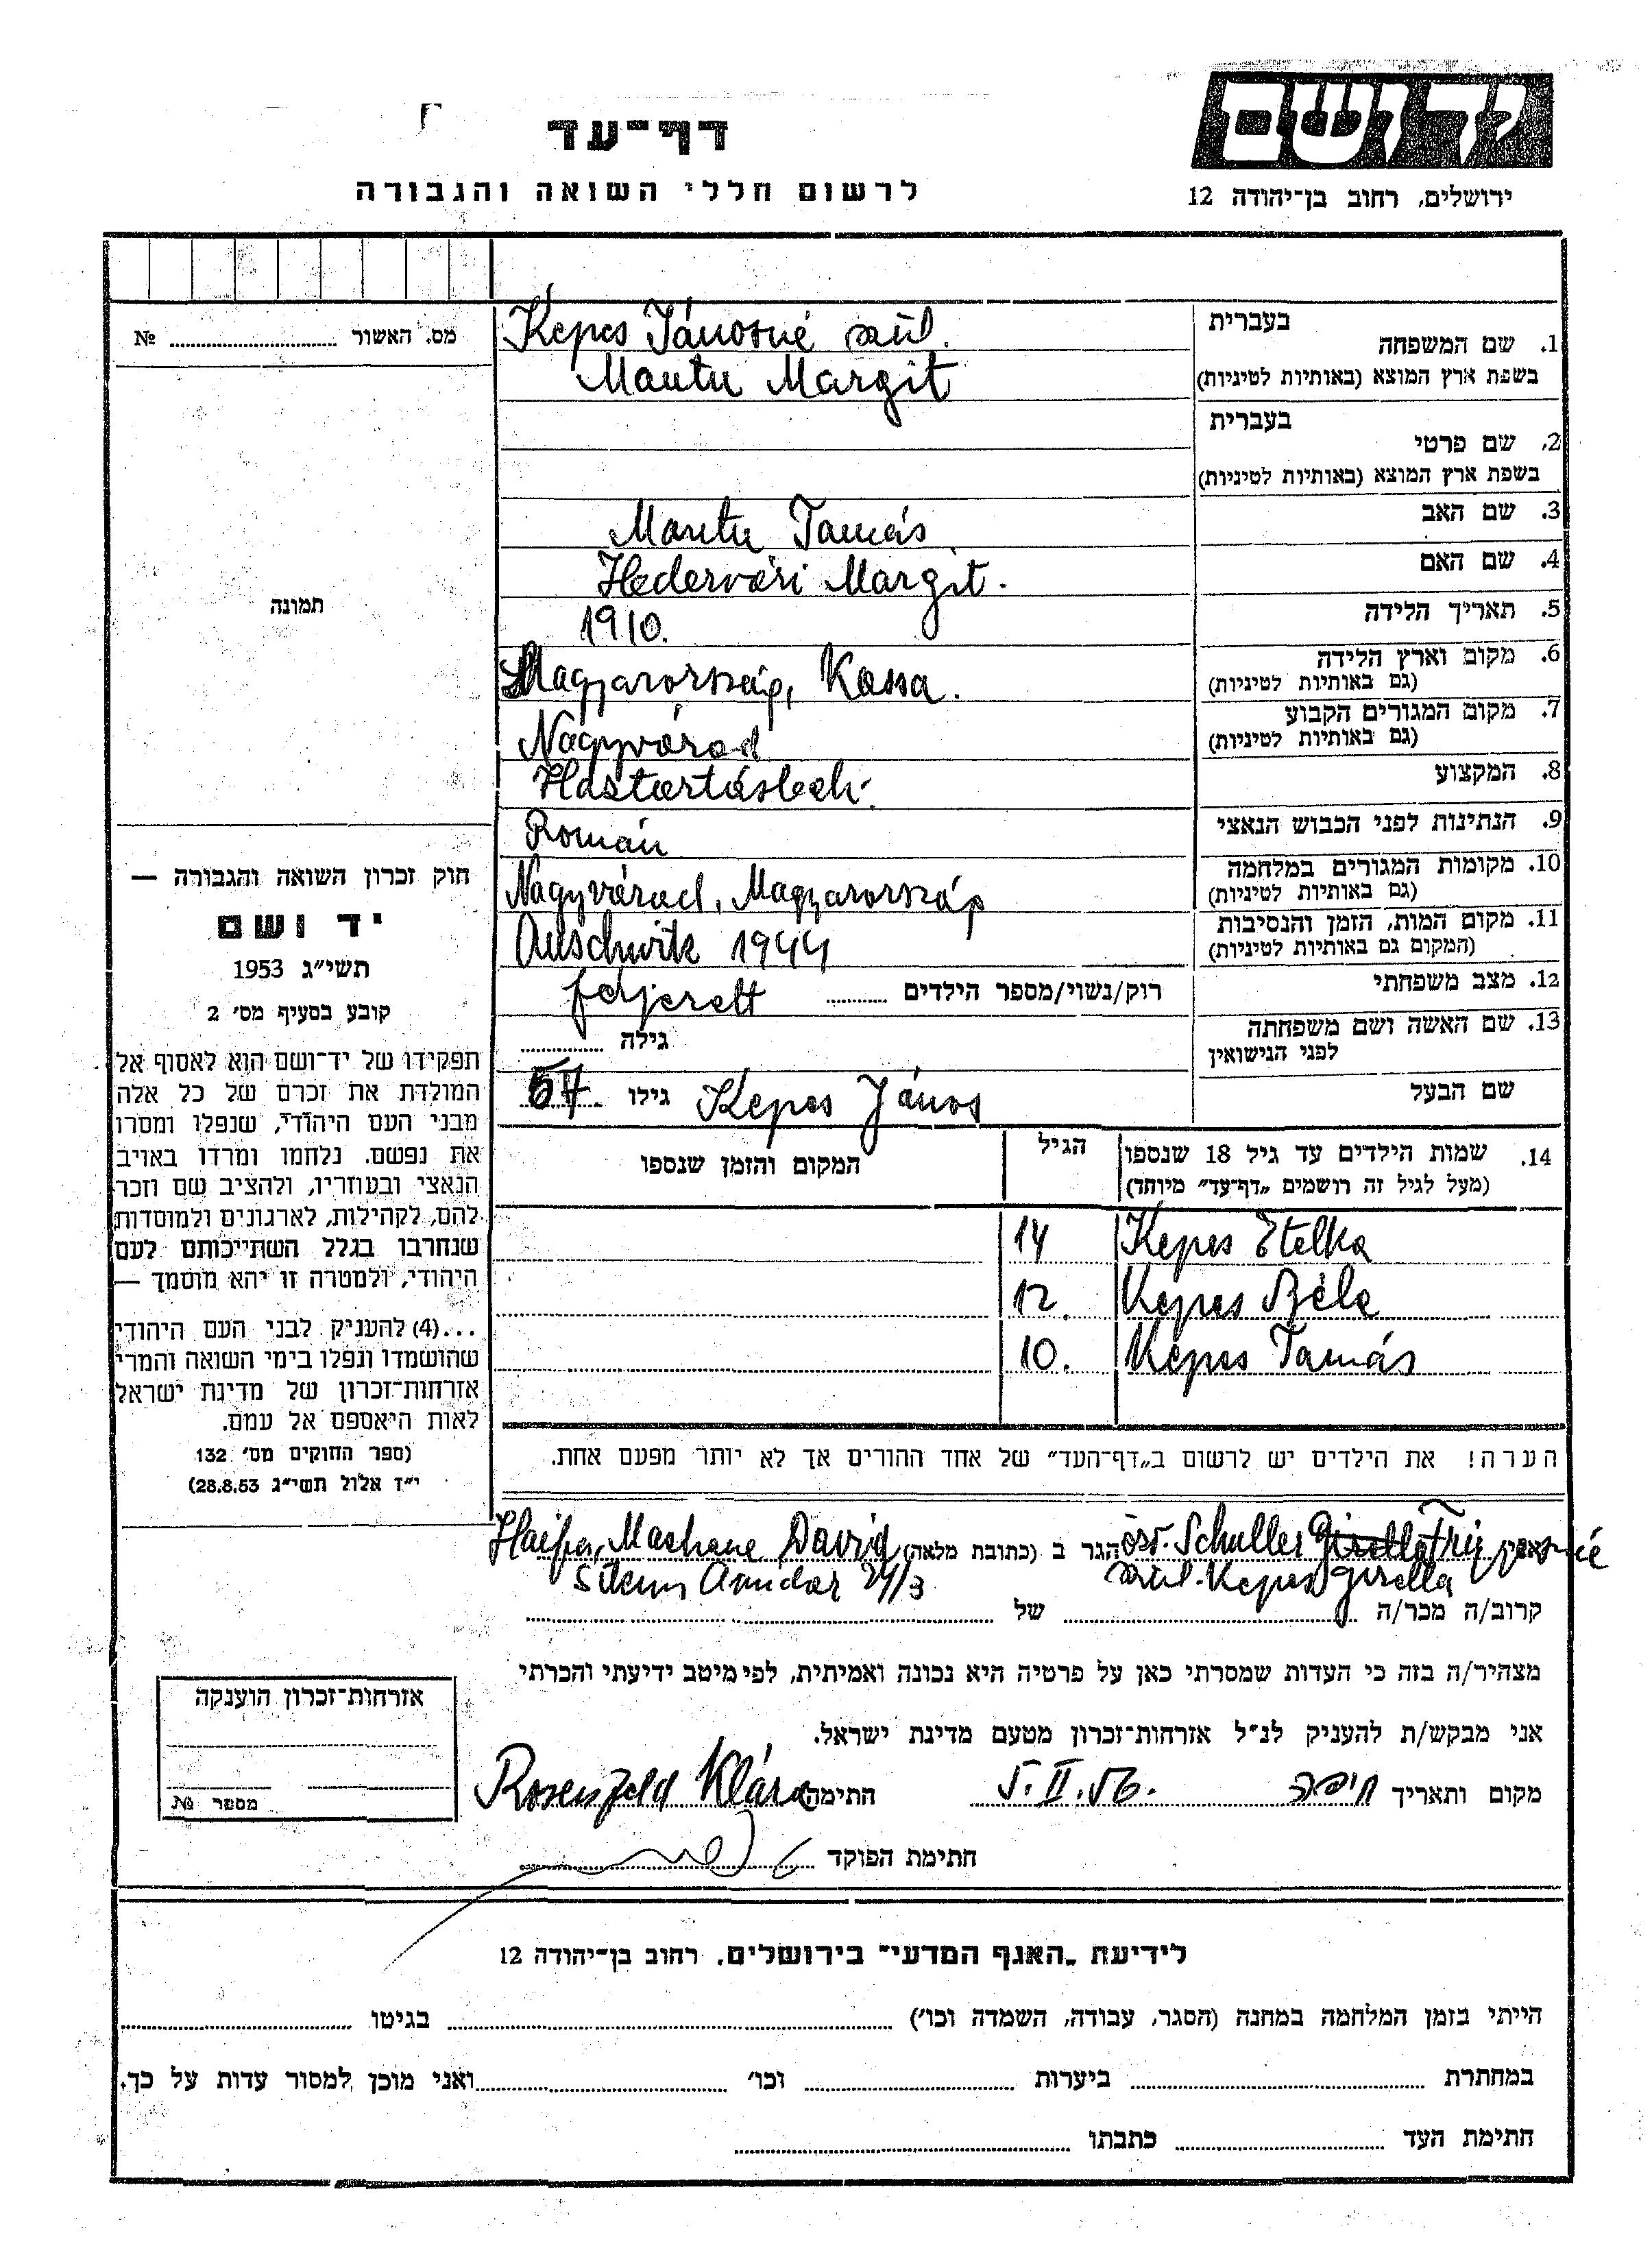 יד ושם
ירושלים, רחוב בן־יהודה 12
דף־עד
לרשום חללי השואה והגבורה
מס. האשור № 
בעברית
1. שם המשפחה
בשפת ארץ המוצא (באותיות לטיניות)
Kepes Jánosné szül.
Margit
בעברית
2. שם פרטי
בשפת ארץ המוצא (באותיות לטיניות)
3. שם האב
Tamás
4. שם האם
Hedervári Margit.
5. תאריך הלידה
1910.
6. מקום וארץ הלידה
(גם באותיות לטיניות)
Magyarország, Kassa.
7. מקום המגורים הקבוע
(גם באותיות לטיניות)
Nagyvárad
8. המקצוע
9. הנתינות לפני הכבוש הנאצי
Román
10. מקומות המגורים במלחמה
(גם באותיות לטיניות)
Nagyvárad, Magyarország
11. מקום המות, הזמן והנסיבות
(המקום גם באותיות לטיניות)
Auschwitz 1944
12. מצב משפחתי
רוק/נשוי/מספר הילדים
ferjezett
13. שם האשה ושם משפחתה
לפני הנישואין
גילה
שם הבעל
Kepes János גילו 57
14. שמות הילדים עד גיל 18 שנספו
(מעל לגיל זה רושמים "דף־עד" מיוחד)
הגיל
המקום והזמן שנספו
Kepes Etelka 14
Kepes Béla 12.
Kepes Tamás 10.
הערה! את הילדים יש לרשום ב"דף־העד" של אחד ההורים אך לא יותר מפעם אחת.
תמונה
חוק זכרון השואה והגבורה —
יד ושם
תשי"ג 1953
קובע בסעיף מס׳ 2
תפקידו של יד־ושם הוא לאסוף אל
המולדת את זכרם של כל אלה
מבני העם היהודי, שנפלו ומסרו
את נפשם. נלחמו ומרדו באויב
הנאצי ובעוזריו, ולהציב שם וזכר
להם, לקהילות, לארגונים ולמוסדות
שנחרבו בגלל השתייכותם לעם
היהודי, ולמטרה זו יהא מוסמך —
...(4) להעניק לבני העם היהודי
שהושמדו ונפלו בימי השואה והמרי
אזרחות־זכרון של מדינת ישראל
לאות היאספם אל עמם.
(ספר החוקים מס׳ 132
י"ז אלול תשי"ג 28.8.53)
אני özv. Schuller
הגר ב (כתובת מלאה) Haifa, Machane David
szül. Kepes Gizella
Amidar 24/3
קרוב/ה מכר/ה של
מצהיר/ה בזה כי העדות שמסרתי כאן על פרטיה היא נכונה ואמיתית, לפי מיטב ידיעתי והכרתי
אני מבקש/ת להעניק לנ"ל אזרחות־זכרון מטעם מדינת ישראל.
מקום ותאריך חיפה 5.II.56. החתימה Rosenfeld Klára
חתימת הפוקד
אזרחות־זכרון הוענקה
מספר №
לידיעת "האגף המדעי" בירושלים. רחוב בן־יהודה 12
הייתי בזמן המלחמה במחנה (הסגר, עבודה, השמדה וכו׳) בגיטו
במחתרת ביערות וכו׳ ואני מוכן למסור עדות על כך.
חתימת העד כתבתו